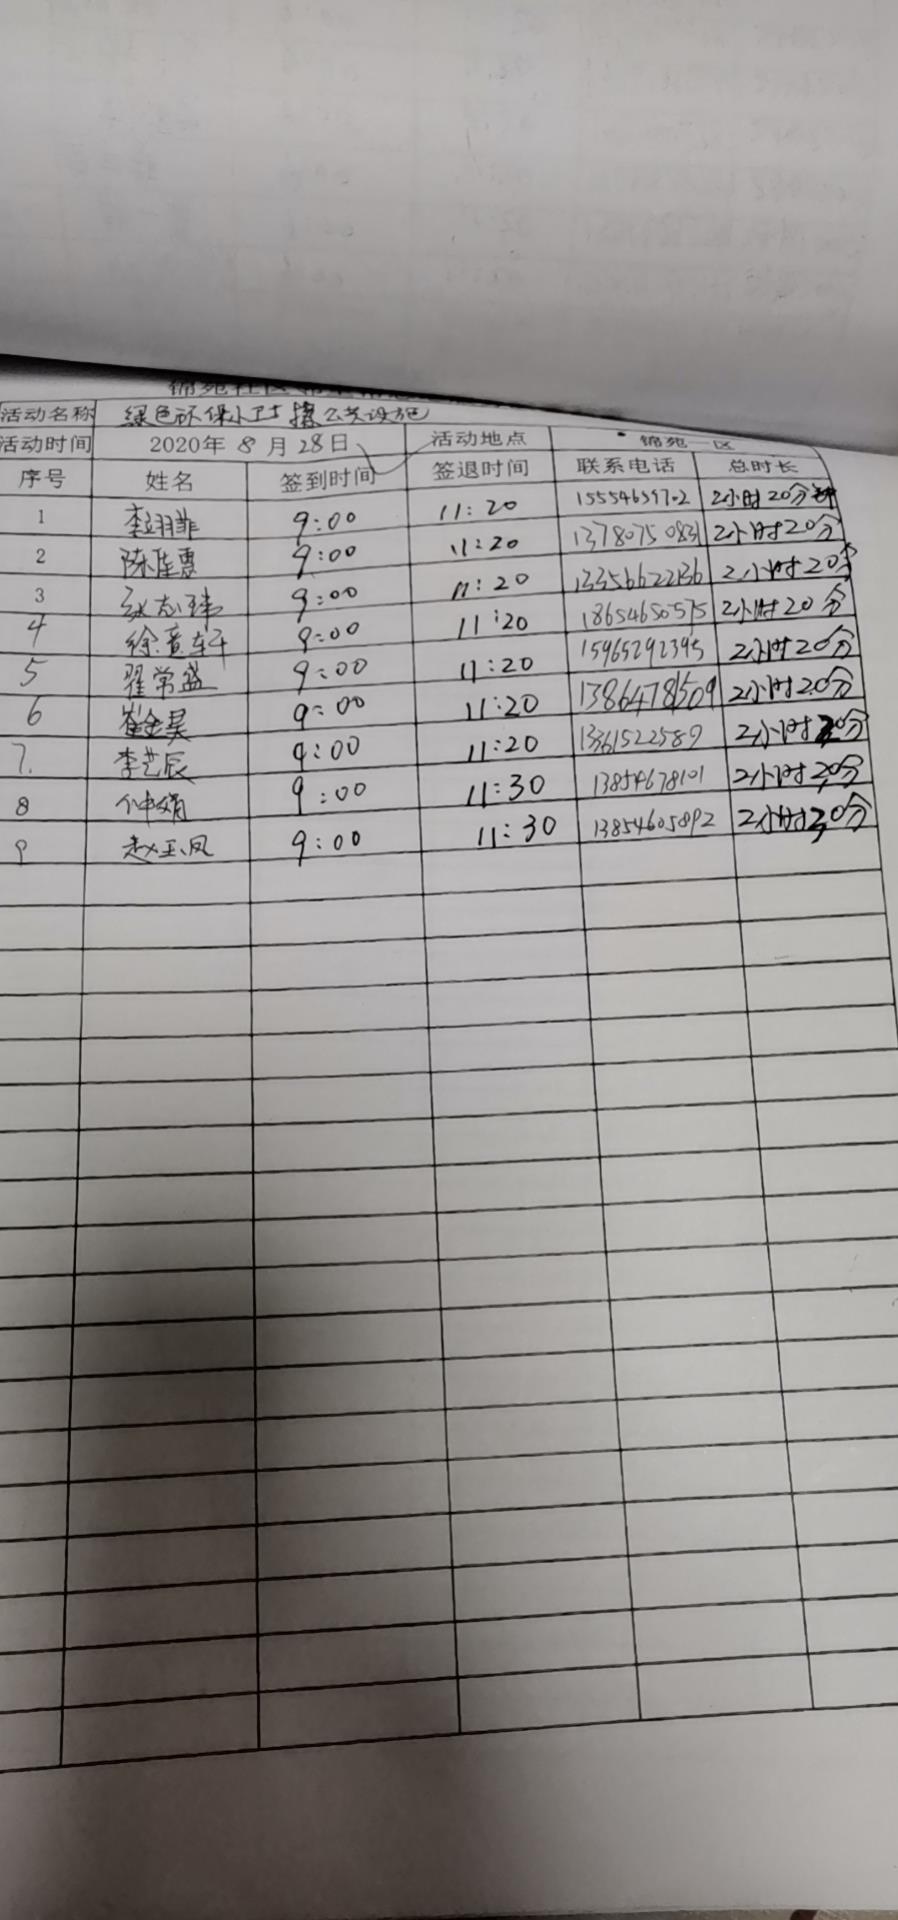 锦苑社区
活动名称 绿色环保小卫士擦公共设施
活动时间 2020年 8 月 28日 活动地点 锦苑一区
序号 姓名 签到时间 签退时间 联系电话 总时长
1 李翊菲 9:00 11:20 15554659702 2小时20分钟
2 陈佳惠 9:00 11:20 13780750831 2小时20分
3 张志玮 9:00 11:20 13356622136 2小时20分
4 徐意轩 9:00 11:20 18654650575 2小时20分
5 翟常盛 9:00 11:20 15965292395 2小时20分
6 崔金昊 9:00 11:20 13864781509 2小时20分
7. 李艺辰 9:00 11:20 13361522589 2小时20分
8 仲娟 9:00 11:30 13854678101 2小时30分
9 赵玉凤 9:00 11:30 13854605892 2小时30分